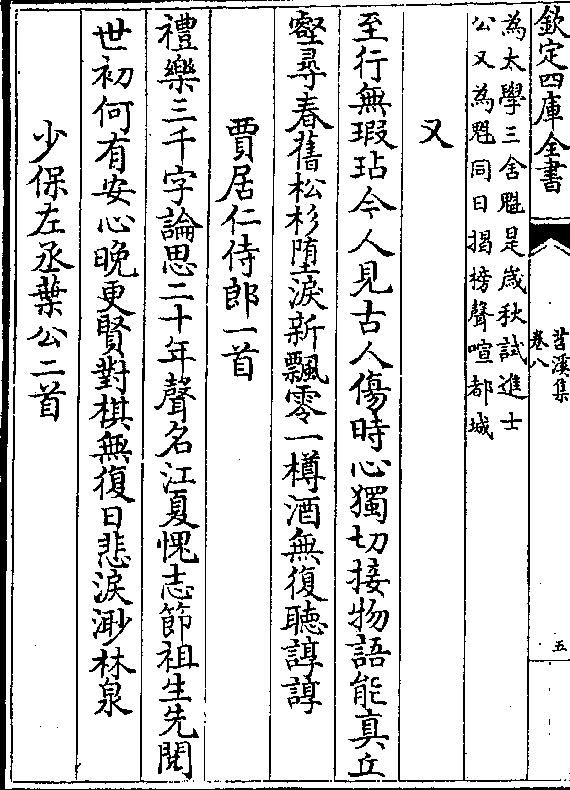 欽定四庫全書
苕溪集
卷八
五
為太學三舍魁是歲秋試進士
公又為魁同日揭榜聲喧都城
又
至行無瑕玷今人見古人傷時心獨切接物語能真丘
壑尋春舊松杉墮淚新飄零一樽酒無復聽諄諄
賈居仁侍郎一首
禮樂三千字論思二十年聲名江夏愧志節祖生先閱
世初何有安心晚更賢對棋無復日悲淚渺林泉
少保左丞葉公二首